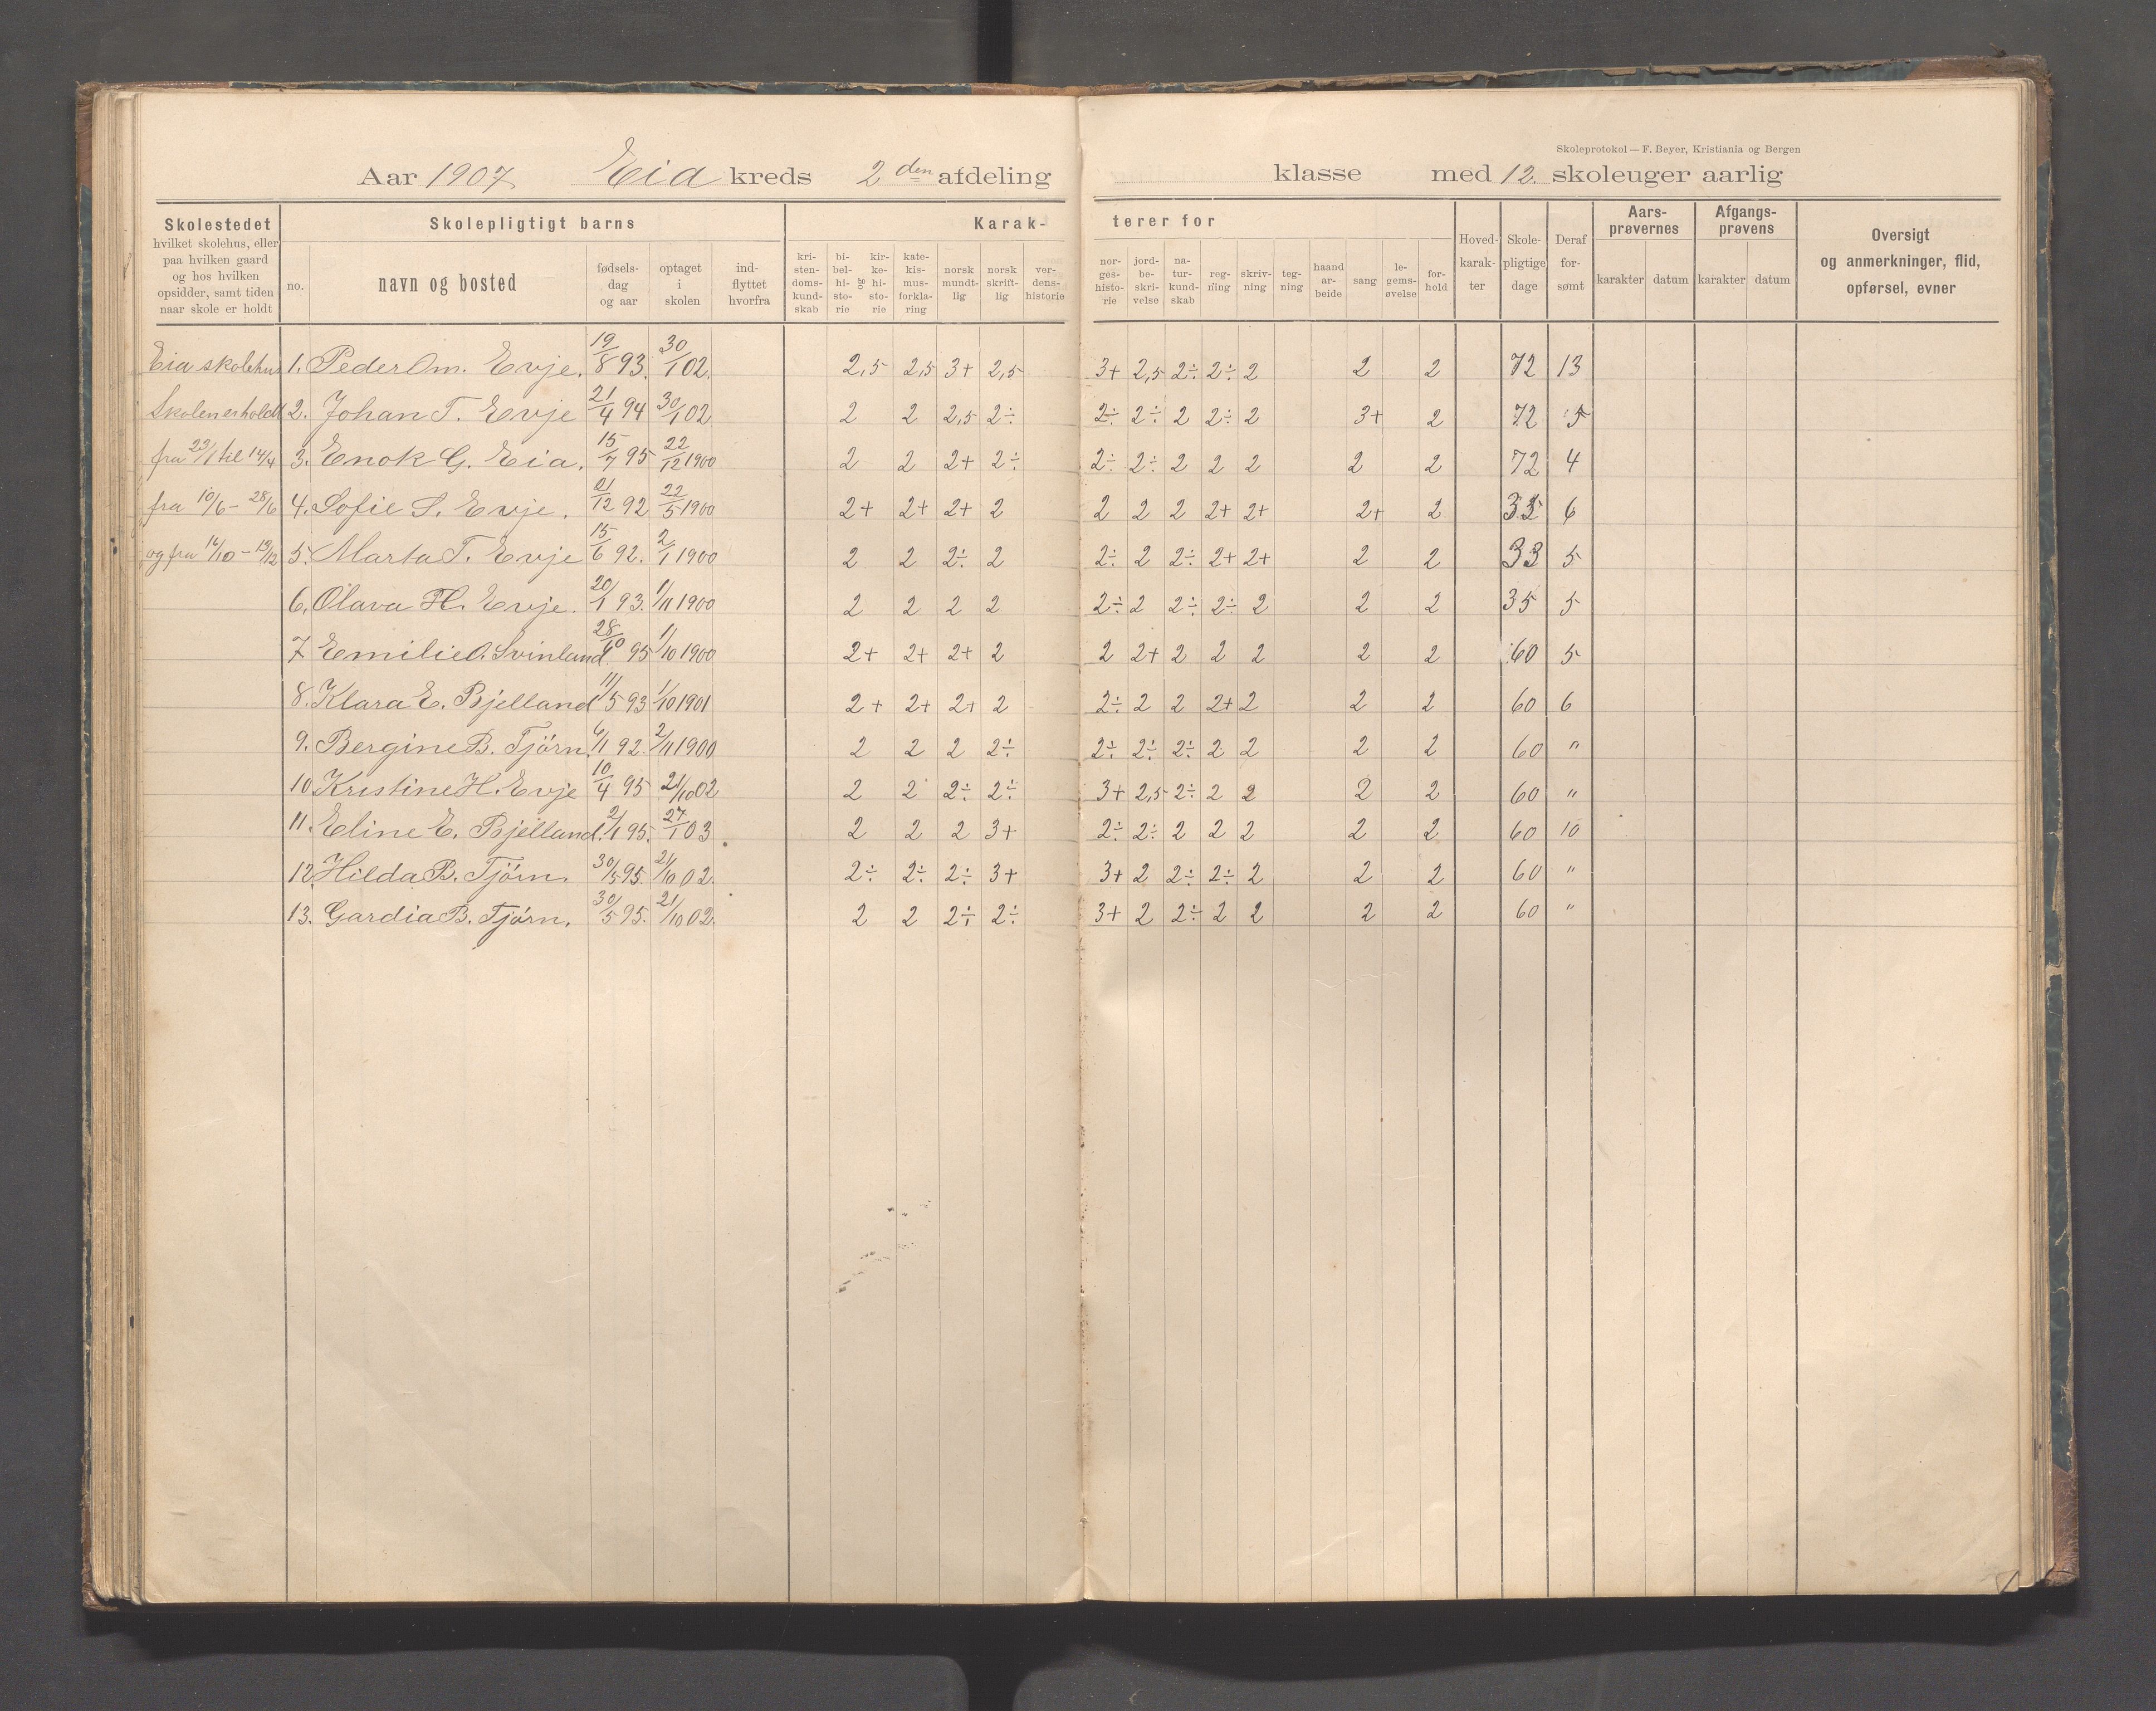 Skoleprotokol — F. Beyer, Kristiania og Bergen
Aar 1907 Eia kreds 2 den afdeling klasse med 12. skoleuger aarlig
Skolestedet hvilket skolehus, eller paa hvilken gaard og hos hvilken opsidder, samt tiden naar skole er holdt
Skolepligtigt barns
no. navn og bosted fødsels-dag og aar optaget i skolen ind-flyttet hvorfra
Karak-terer for
kri-sten-doms-kund-skab bi-bel-hi-sto-rie og kir-ke-hi-sto-rie kate-kis-mus-forkla-ring norsk mundt-lig norsk skrift-lig ver-dens-historie nor-ges-histo-rie jord-be-skri-velse na-tur-kund-skab reg-ning skriv-ning teg-ning haand ar-beide sang le-gems-øvelse for-hold
Hoved-karak-ter Skole-pligtige dage Deraf for-sømt
Aars-prøvernes karakter datum
Afgangs-prøvens karakter datum
Oversigt og anmerkninger, flid, opførsel, evner
Eia skolehus 1. Peder Om. Evje. 19/8 93. 30/1 02. 2,5 2,5 3+ 2,5 3+ 2,5 2÷ 2÷ 2 2 2 72 13
Skolen er holdt 2. Johan T. Evje 21/4 94 30/1 02 2 2 2,5 2÷ 2÷ 2÷ 2 2÷ 2 3+ 2 72 5
fra 23/1 til 14/4 3. Enok G. Eia. 15/7 95 22/12 1900 2 2 2+ 2÷ 2÷ 2÷ 2 2 2 2 2 72 4
fra 10/6 - 28/6 4. Sofie S. Evje. 21/12 92 22/5 1900 2+ 2+ 2+ 2 2 2 2 2+ 2+ 2+ 2 6
og fra 16/10 - 13/12 5. Marta T. Evje 15/6 92. 2/1 1900 2 2 2÷ 2 2÷ 2 2÷ 2+ 2+ 2 2 33 5
6. Olava H. Evje. 20/1 93. 1/11 1900 2 2 2 2 2÷ 2 2÷ 2÷ 2 2 2 35 5
7 Emilie O. Svinland 28/10 95 1/10 1900 2+ 2+ 2+ 2 2 2+ 2 2 2 2 2 60 5
8. Klara E. Bjelland 11/5 93 1/10 1901 2+ 2+ 2+ 2 2÷ 2 2 2+ 2 2 2 60 6
9. Bergine B. Tjörn. 6/1 92. 2/11 1900 2 2 2 2÷ 2÷ 2÷ 2÷ 2 2 2 2 60 "
10 Kristine H. Evje 10/4 95 21/10 02 2 2 2÷ 2÷ 3+ 2,5 2÷ 2 2 2 2 60 "
11. Eline E. Bjelland. 2/1 95. 27/1 03 2 2 2 3+ 2÷ 2÷ 2 2 2 2 2 60 10
12. Hilda B. Tjörn. 30/5 95. 21/10 02. 2÷ 2÷ 2÷ 3+ 3+ 2 2÷ 2÷ 2 2 2 60 "
13. Gardia B. Tjörn. 30/5 95. 21/10 02. 2 2 2÷ 2÷ 3+ 2 2÷ 2 2 2 2 60 "